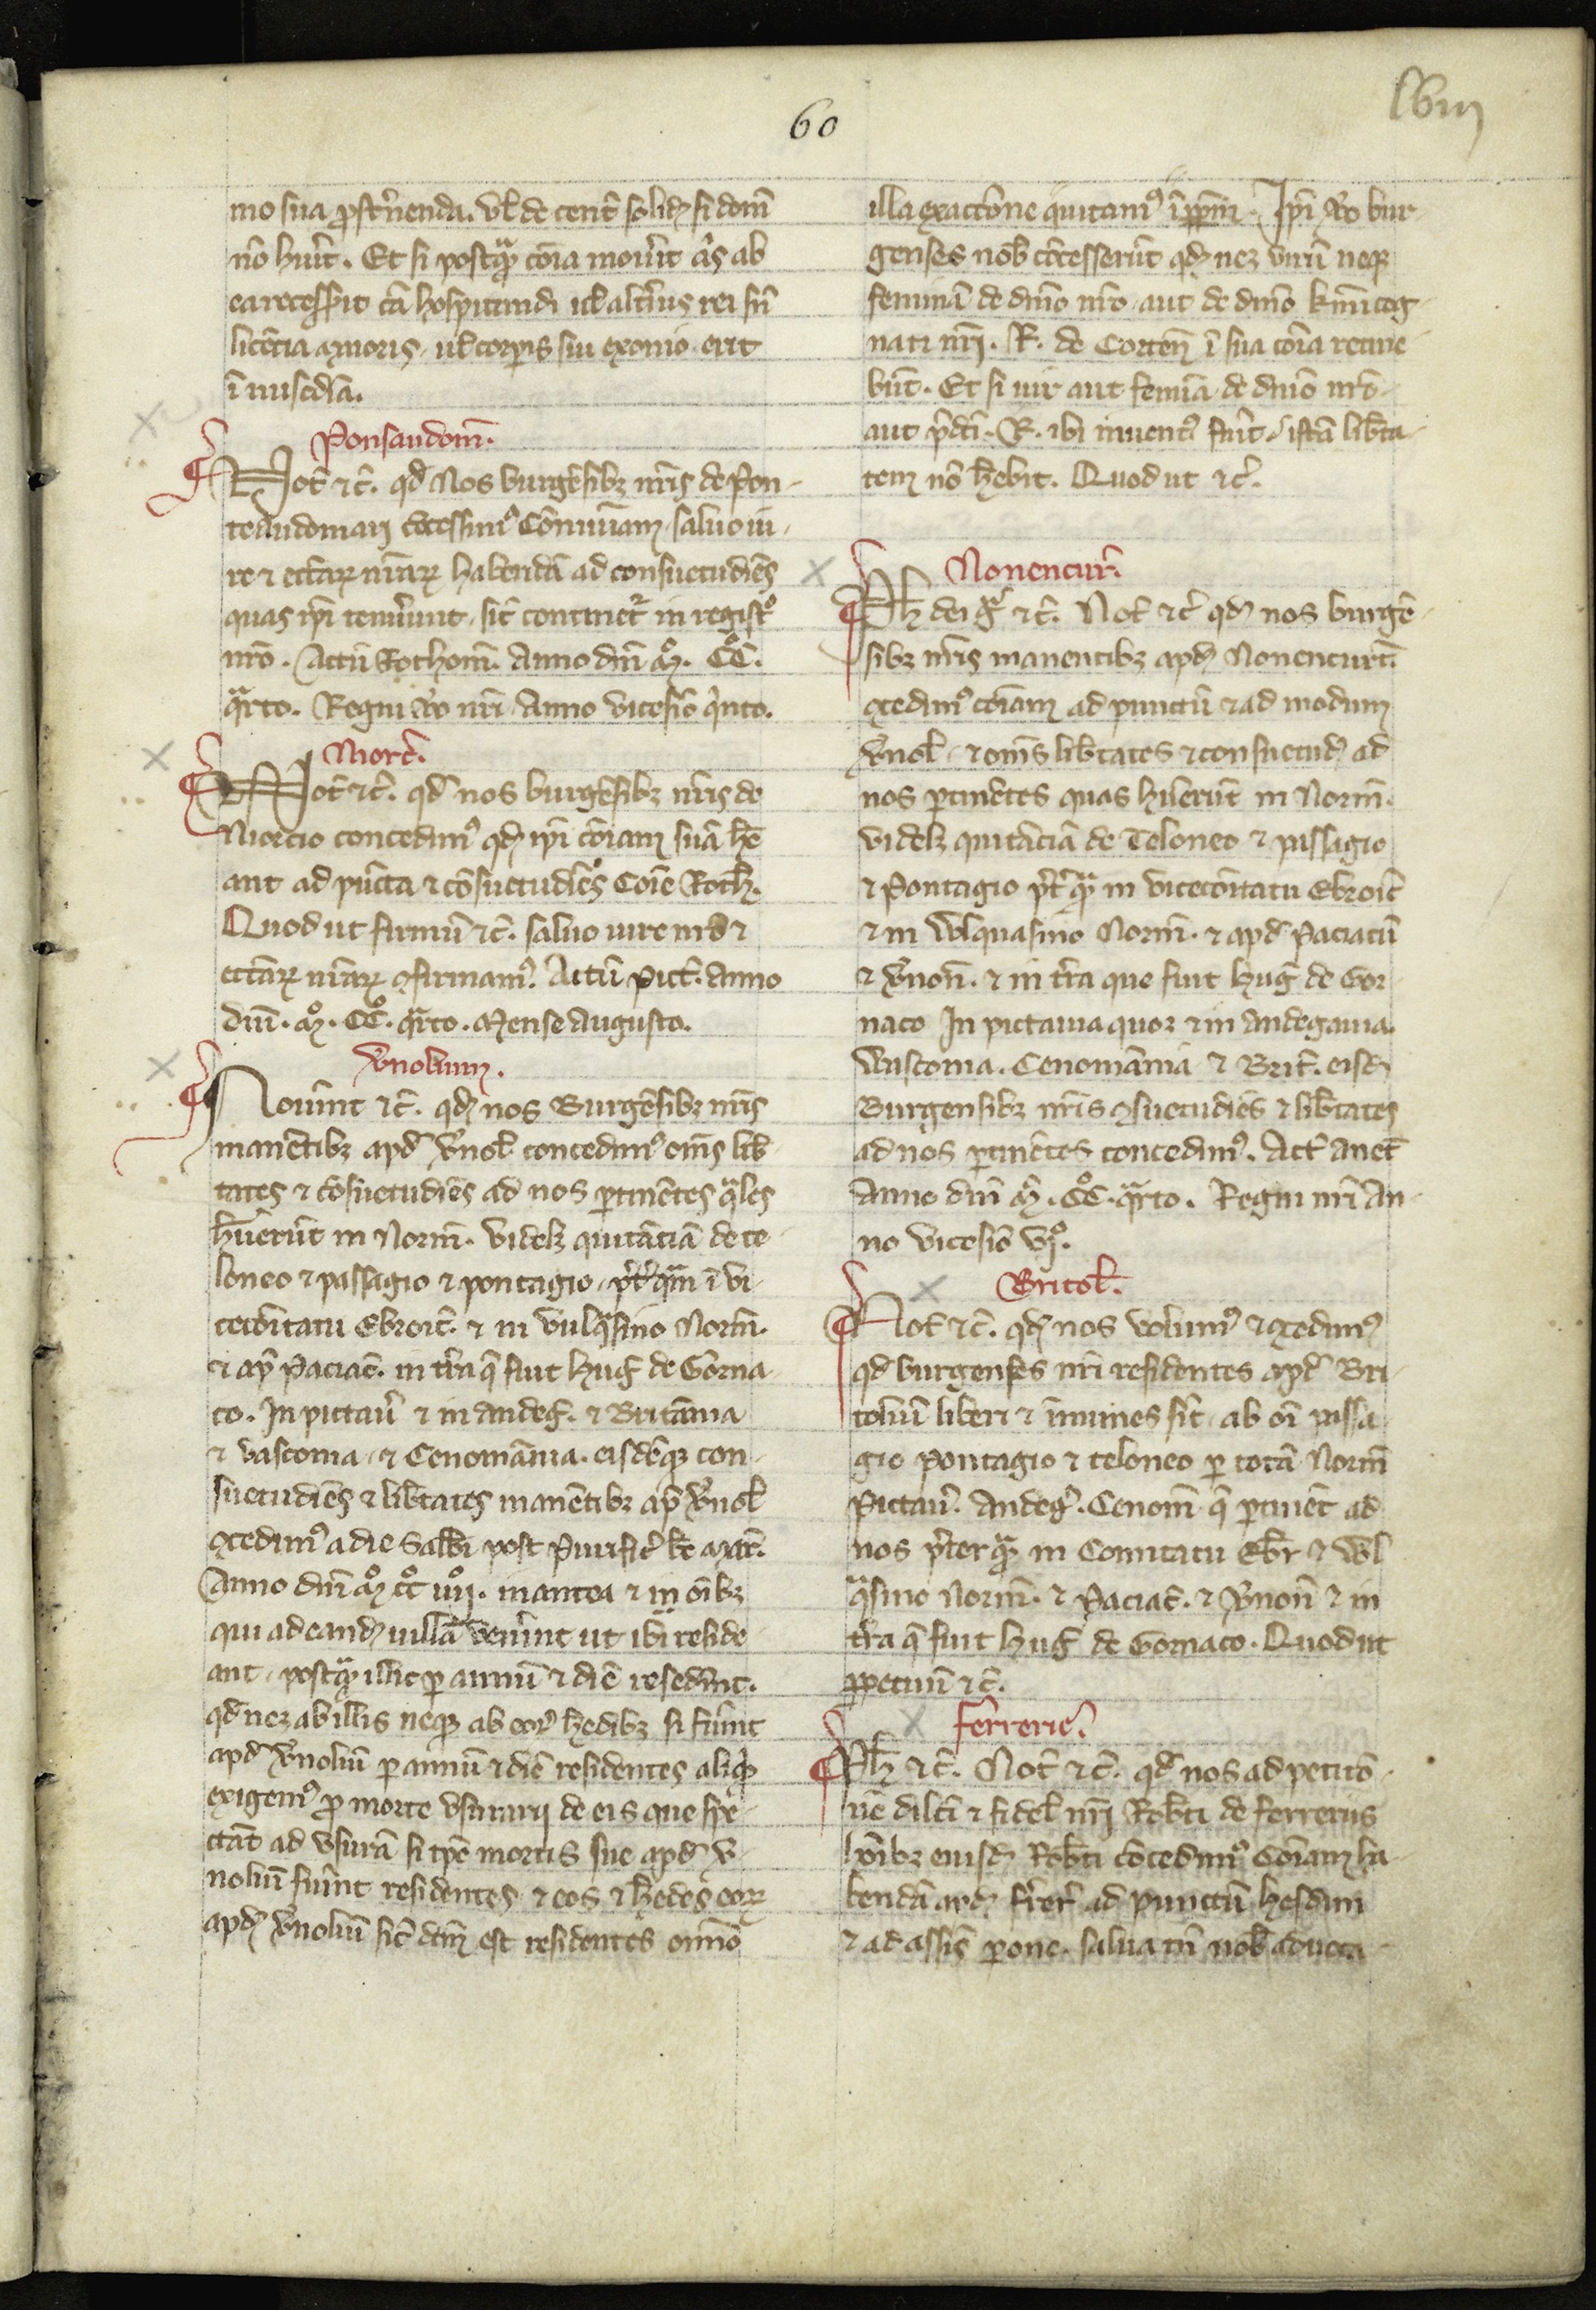 60
lviii
mo sua ꝓst̾nenda. vl̾ de cent̾ solid̾ si dom̄
nō hūit. Et si postq̄ꝫ cōia mou̾it aīs ab
ea recess̾it cā hospitandi ul̾ alt̾ius rei sn̄
licētia maioris, ul̾ corp̄is sui exonio erit
ī mis̾cdīa.
Ponsaudom̄.
Not̾ ⁊c̾. qd̾ Nos burgēsibꝫ nr̄is de Pon-
teaudomari ↄcessim⁹ Cōmuniam saluo iu-
re ⁊ eccl̾aꝝ nr̄aꝝ habendā ad consuetudīes
quas ip̄i tenu̾unt, sic̾ continet᷑ in registº
nr̄o. Actū Rothom̄. Anno dn̄i Mº. CCº.
qᵃrto. Regni ū̾o nr̄i Anno vicesīo qⁱnto.
Niort̾.
Not̾ ⁊c̾. qd̾ nos burgēsibꝫ nr̄is de
Niorcio concedim⁹ qd̾ ip̄i cōiam suā hē
ant ad pūcta ⁊ cōsuetudīes Cōie Roth̾.
Quod ut firmū ⁊c̾. saluo iure nr̄o ⁊
eccl̾aꝝ nr̄aꝝ ꝯfirmam⁹. Actū Pict̾. Anno
dn̄i. Mº. CCº. qᵃrto. Mense Augusto.
V̾nolium.
Nou̾int ⁊c̾. qd̾ nos Burgēsibꝫ nr̄is
manētibꝫ apd̾ V̾nol̾ concedim⁹ om̄s lib̾
tates ⁊ cōsuetudīes ad nos ꝑtinētes qᵃles
hu̾erūt in Norm̄. videlꝫ quitāciā de te-
loneo ⁊ passagio ⁊ pontagio, p̄t̾qᵃm ī vi-
cecōitatu Ebroic̾. ⁊ in vulqᵃsino Norm̄.
⁊ ap̾ Paciac̾. in tr̄a q̄ fuit hug̾ de Gorna
co. In pictau̾ ⁊ in andeg̾. ⁊ Britānia
⁊ vasconia, ⁊ Cenomānia. eisdēqꝫ con-
suetudīes ⁊ lib̾tates manētibꝫ ap̾ V̾nol̾
ꝯcedim⁹ a die Sabb̾i post Purific̾ b̄e mar̾.
Anno dn̄i Mº CCº iiijº. inantea ⁊ in oīibꝫ
qui ad eand̾ uillā ven̾int ut ibi reside
ant, postqᵃꝫ illic ꝑ annū ⁊ diē resed̾int.
qd̾ neꝫ ab illis neqꝫ ab eoꝝ h̾edibꝫ si fu̾int
apd̾ V̾noliū ꝑ annū ⁊ diē residentes aliqⁱd
exigem⁹ ꝓ morte vsurarij de eis que spē-
ctāt ad vsurā si tp̄e mortis sue apd̾ V̾-
noliū fu̾int residentes ⁊ eos ⁊ h̾edes eoꝝ
apd̾ V̾noliū sic̾ dc̄m est residentes om̄ō
illa exaccōne quitam⁹ īꝑpm̄. Ip̄i ū̾o bur-
genses nob̾ cōcesserūt qd̾ neꝫ virū neqꝫ
feminā de dn̄io nr̄o, aut de dn̄io kmī cog-
nati nr̄i. R. de Corten̄ ī sua cōia retine
būt. Et si uir aut femīa de dn̄io nr̄o-
aut p̄dc̄i. R. ibi inuent⁹ fu̾it, istā lib̾ta-
tem nō h̾ebit. Quod ut ⁊c̾.
Nonencur̾.
Ph̾ dei gᵃ ⁊c̾. Not̾ ⁊c̾ qd̾ nos burgē-
sibꝫ nr̄is manentibꝫ apd̾ Nonencurt̄
ꝯcedim⁹ cōiam ad punctū ⁊ ad modum
V̾nol̾, ⁊ om̄s lib̾tates ⁊ consuetud̾ ad
nos ꝑtinētes quas hu̾erūt in Norm̄.
videlꝫ quitāciā de Teloneo ⁊ passagio
⁊ Pontagio p̄t̾qᵃꝫ in vicecōitatu Ebroic̾
⁊ in Vlquasino Norm̄. ⁊ apd̾ Paciacū
⁊ V̾non̄. ⁊ in tr̄a que fuit hug̾ de Gor-
naco In pictauia quoꝫ ⁊ in andegauia.
Wasconia. Cenomānia ⁊ Brit̾. eisd̾
Burgensibꝫ nr̄is ꝯsuetudīes ⁊ lib̾tates
ad nos ꝑtinētes concedim⁹. Act̾ anet̾
Anno dn̄i Mº. CCº. qᵃrto. Regni nr̄i An-
no vicesīo vjº.
Britol̾.
Not̾ ⁊c̾. qd̾ nos volum⁹ ⁊ ꝯcedim⁹
qd̾ burgenses nr̄i residentes apd̾ Bri-
toliū liberi ⁊ īmunes sīt, ab oī passa-
gio pontagio ⁊ teloneo ꝑ totā Norm̄
Pictau̾. Andeg̾. Cenom̄ q̄ ꝑtinēt ad
nos p̄terqᵃꝫ in Comitatu Ebr̾ ⁊ Vl
qᵃsino Norm̄. ⁊ Paciac̾. ⁊ V̾non̄ ⁊ in
tr̄a q̄ fuit hug̾ de Gornaco. Quod ut
ꝑpetuū ⁊c̾.
ferrerie̾.
Ph̾ ⁊c̾. Not̾ ⁊c̾. qd̾ nos ad peticō-
nē dilc̄i ⁊ fidel̾ nr̄i Rob̾ti de ferreriis
hōibꝫ eiusd̾ Rob̾ti cōcedim⁹ Cōiam ha-
bendā apd̾ fr̾er̾ ad punctū hesdini
⁊ ad assis̾ ꝑone. salua tn̄ nob̾ aduoca-